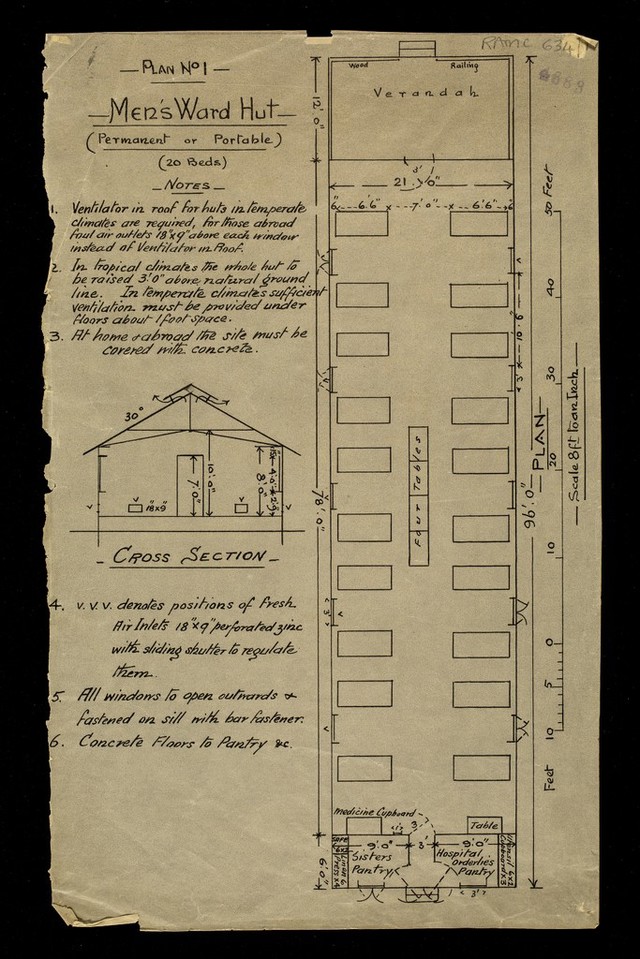 RAMC 634
PLAN No 1
MEN'S WARD HUT
(Permanent or Portable)
(20 Beds)
NOTES
1. Ventilator in roof for huts in temperate
climates are required, for those abroad
foul air outlets 18"x9" above each window
instead of Ventilator in Roof.
2. In tropical climates the whole hut to
be raised 3'.0" above natural ground
line. In temperate climates sufficient
ventilation must be provided under
floors about 1 foot space.
3. At home & abroad the site must be
covered with concrete.
30°
18"x9"
7'.0"
10'.0"
8'.0"
V
V
CROSS SECTION
4. v. v. v. denotes positions of Fresh
Air Inlets 18"x9" perforated zinc
with sliding shutter to regulate
them.
5. All windows to open outwards &
fastened on sill with bar fastener.
6. Concrete Floors to Pantry &c.
Wood Railing
Verandah
12'.0"
3'
21'.0"
6" 6'.6" 7'.0" 6'.6" 6"
10'.6"
3'
FOUR TABLES
78'.0"
96'.0"
PLAN
Scale 8ft to an Inch
50 Feet
40
30
20
10
0
5
10
Feet
3'
V
V
Medicine Cupboard
3'
Table
9'.0" 3' 9'.0"
Sisters
Pantry
Hospital
Orderlies
Pantry
6'.0"
3'